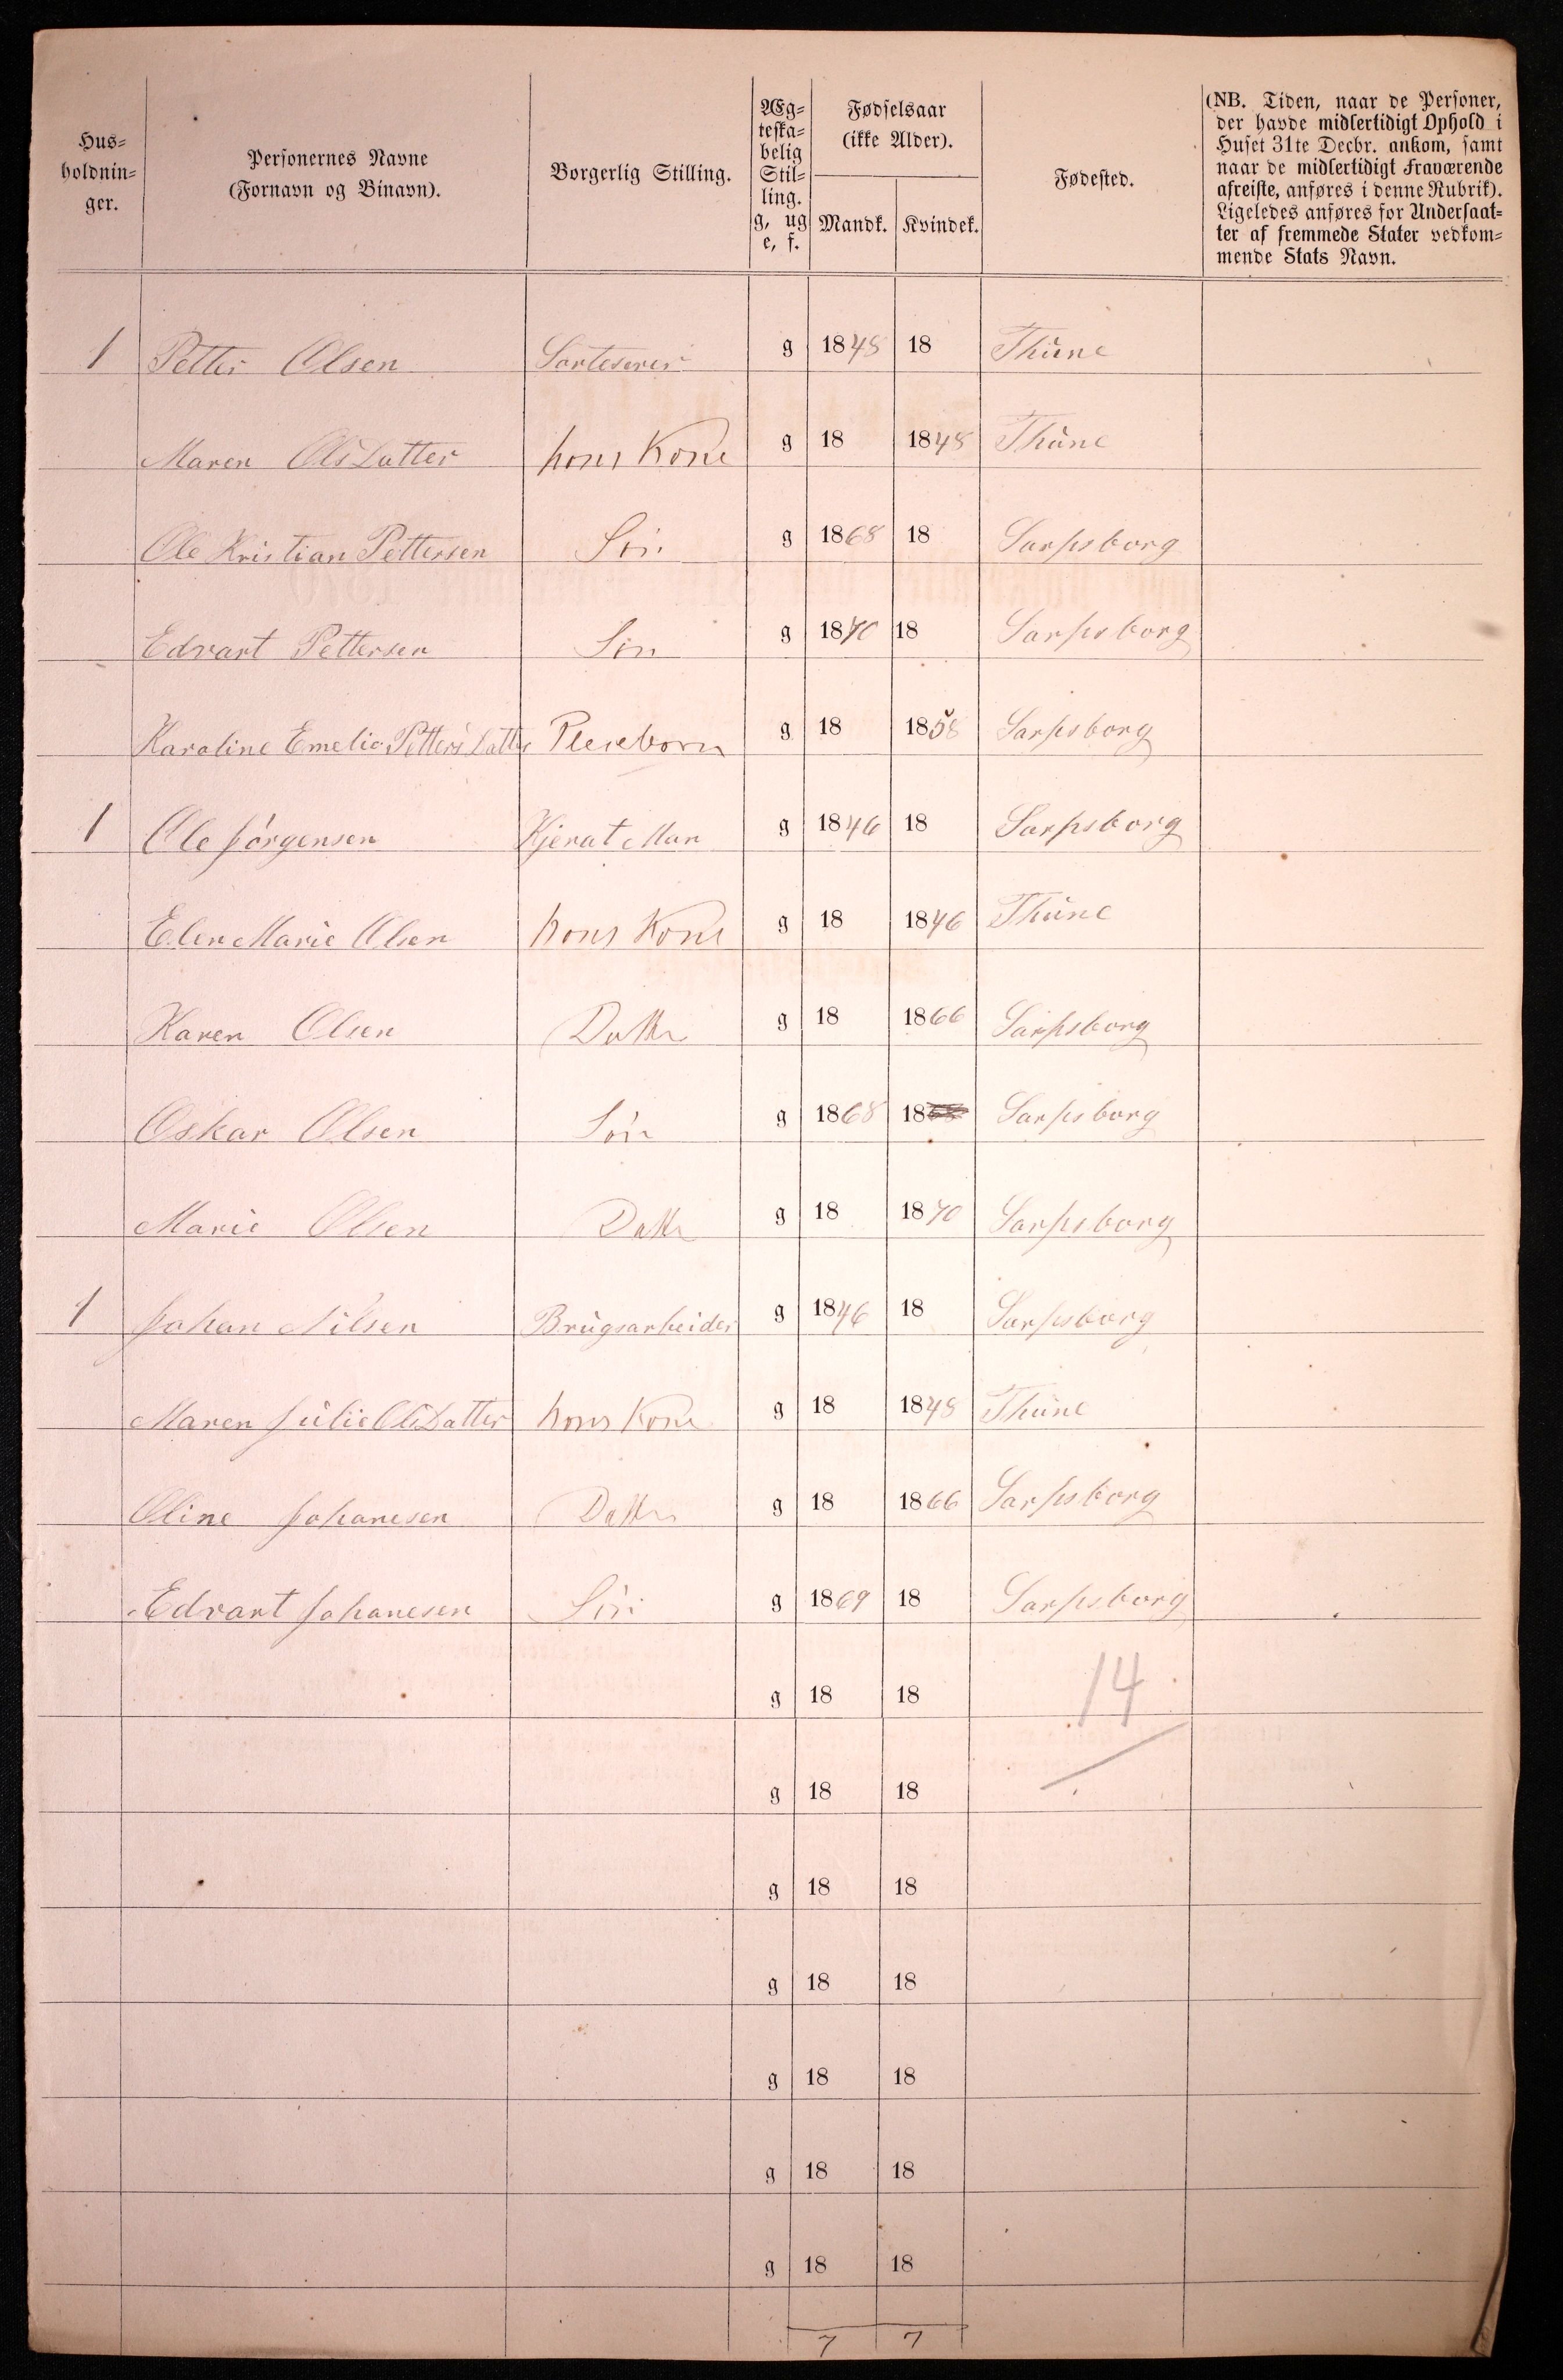 Hus=
holdnin=
ger.
Personernes Navne
(Fornavn og Binavn).
Borgerlig Stilling.
Æg=
teska=
belig
Stil=
ling.
g, ug
e, f.
Fødselsaar
(ikke Alder).
Mandk. Kvindek.
Fødested.
(NB. Tiden, naar de Personer,
der havde midlertidigt Ophold i
Huset 31te Decbr. ankom, samt
naar de midlertidigt Fraværende
afreiste, anføres i denne Rubrik).
Ligeledes anføres for Undersaat=
ter af fremmede Stater vedkom=
mende Stats Navn.
1 Petter Olsen Sorteserer g 1848 18 Thüne
Maren OlsDatter hans Kone g 18 1848 Thüne
Ole Kristian Pettersen Søn g 1868 18 Sarpsborg
Edvart Pettersen Søn g 1870 18 Sarpsborg
Karoline Emelie Petters Datter Pleieborn g 18 1858 Sarpsborg
1 Ole Jørgensen Kjerat Man g 1846 18 Sarpsborg
Elen Marie Olsen hans Kone g 18 1846 Thüne
Karen Olsen Datter g 18 1866 Sarpsborg
Oskar Olsen Søn g 1868 18 Sarpsborg
Marie Olsen Datter g 18 1870 Sarpsborg
1 Johan Nilsen Brügsarbeider g 1846 18 Sarpsborg
Maren Jülie OlsDatter hans Kone g 18 1848 Thüne
Oline Johanesen Datter g 18 1866 Sarpsborg
Edvart Johanesen Søn g 1869 18 Sarpsborg
g 18 18 14
g 18 18
g 18 18
g 18 18
g 18 18
g 18 18
g 18 18
7 7